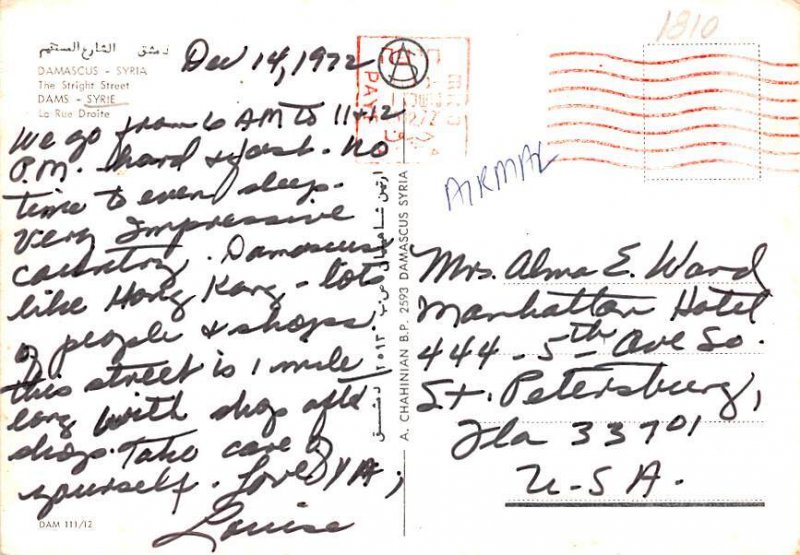 1310
دمشق الشارع المستقيم
DAMASCUS - SYRIA
The Stright Street
DAMS - SYRIE
La Rue Droite
Dec 14, 1972
We go from 6 AM to 11 + 12
P.M. hard + fast. No
time to even sleep.
Very Impressive
country. Damascus
like Hong Kong - lots
of people + shops
this street is 1 mile
long with shop after
shop. Take care of
yourself. Love,
Louise
DAM 111/12
A. CHAHINIAN B.P. 2593 DAMASCUS SYRIA
AIRMAIL
Mrs. Alma E. Ward
Manhattan Hotel
444 - 5th Ave So.
St. Petersburg,
Fla 33701
U-S A.